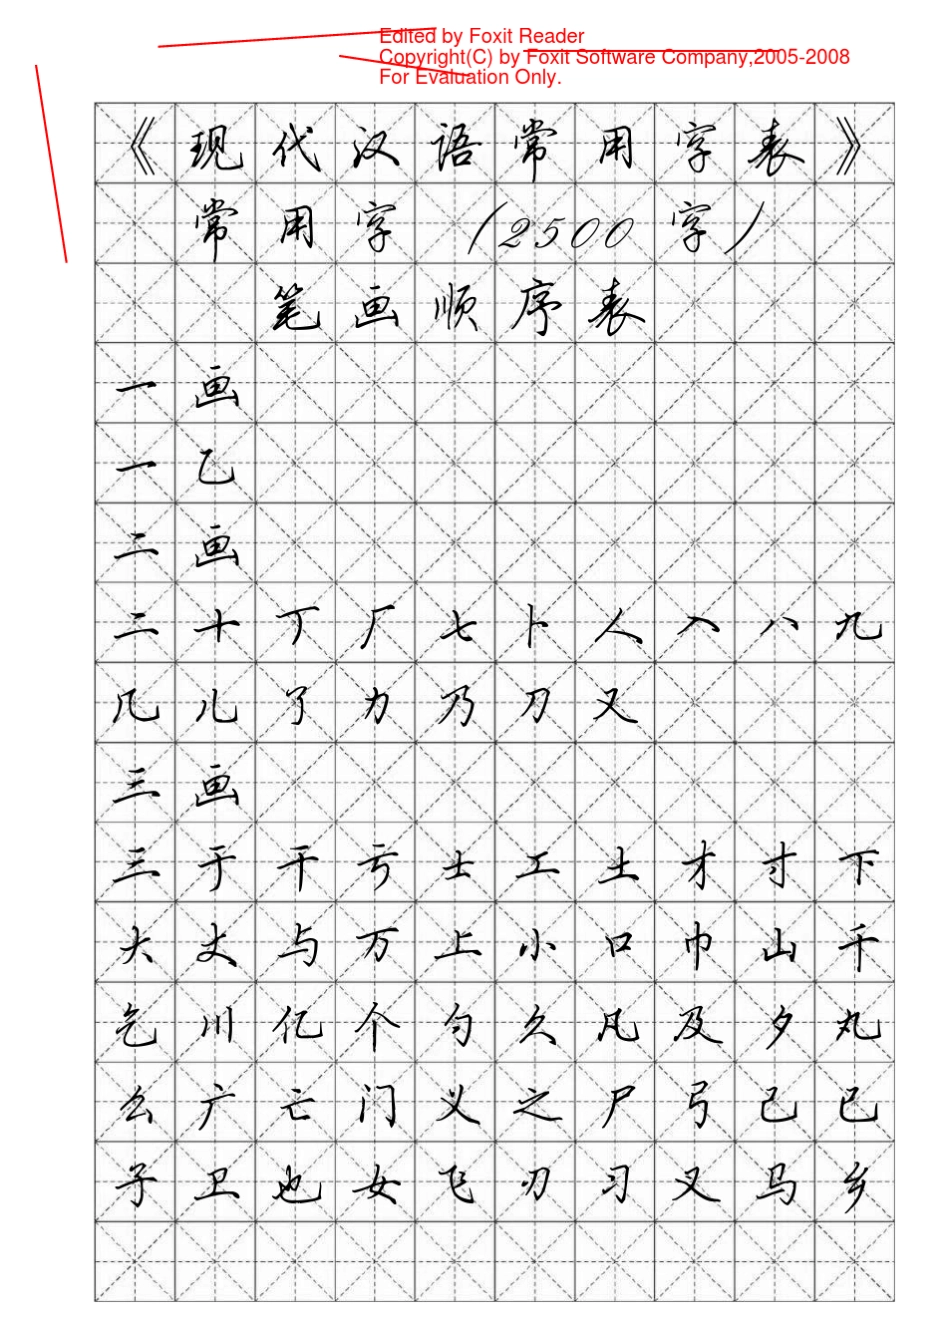 Edited by Foxit Reader
Copyright(C) by Foxit Software Company,2005-2008
For Evaluation Only.
《现代汉语常用字表》
常用字 (2500字)
笔画顺序表
一画
一乙
二画
二十丁厂七卜人入八九
几儿了力乃刀又
三画
三于干亏士工土才寸下
大丈与万上小口巾山千
乞川亿个勺久凡及夕丸
么广亡门义之尸弓己已
子卫也女飞刃习叉马乡